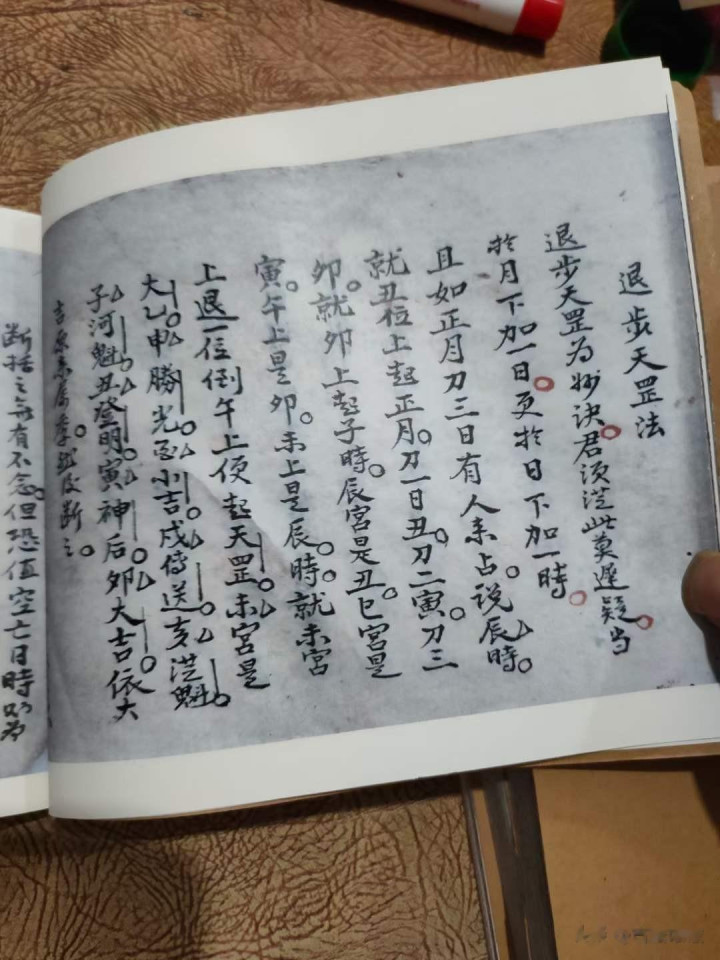 退步天罡法
退步天罡为妙诀。君须從此莫遲疑。当
於月下加一日。更於日下加一時。
且如正月刀三日有人来占。说辰時。
就丑位上起正月。刀一日丑。刀二寅。刀三
卯。就卯上起子時。辰宮是丑。巳宮是
寅。午上是卯。未上是辰。時。就未宮
上退一位倒午上便起天罡。未宮是
大乙。申勝光。酉小吉。戌傳送。亥從魁。
子河魁。丑登明。寅神后。卯大吉。依大
断之。
断括之無有不念。但恐值空亡日時